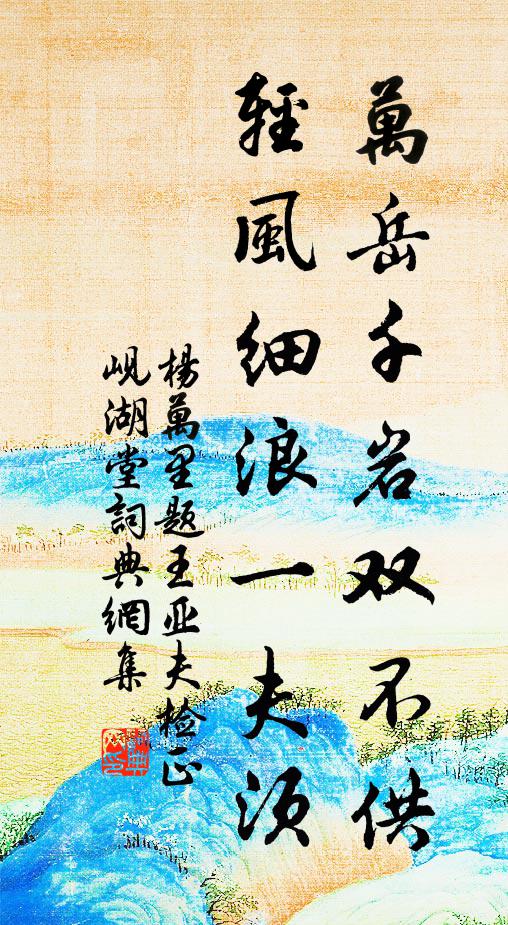 萬岳千岩双不供
輕風细浪一夫须
楊萬里题王亚夫检正
岘湖堂詞典網集